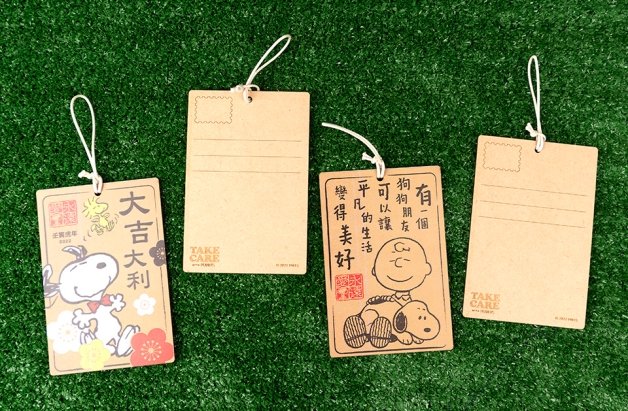 大吉
大利
壬寅虎年
2022
TAKE
CARE
© 2022 PNTS
有一個
狗狗朋友
可以讓
平凡的生活
變得美好
TAKE
CARE
© 2022 PNTS